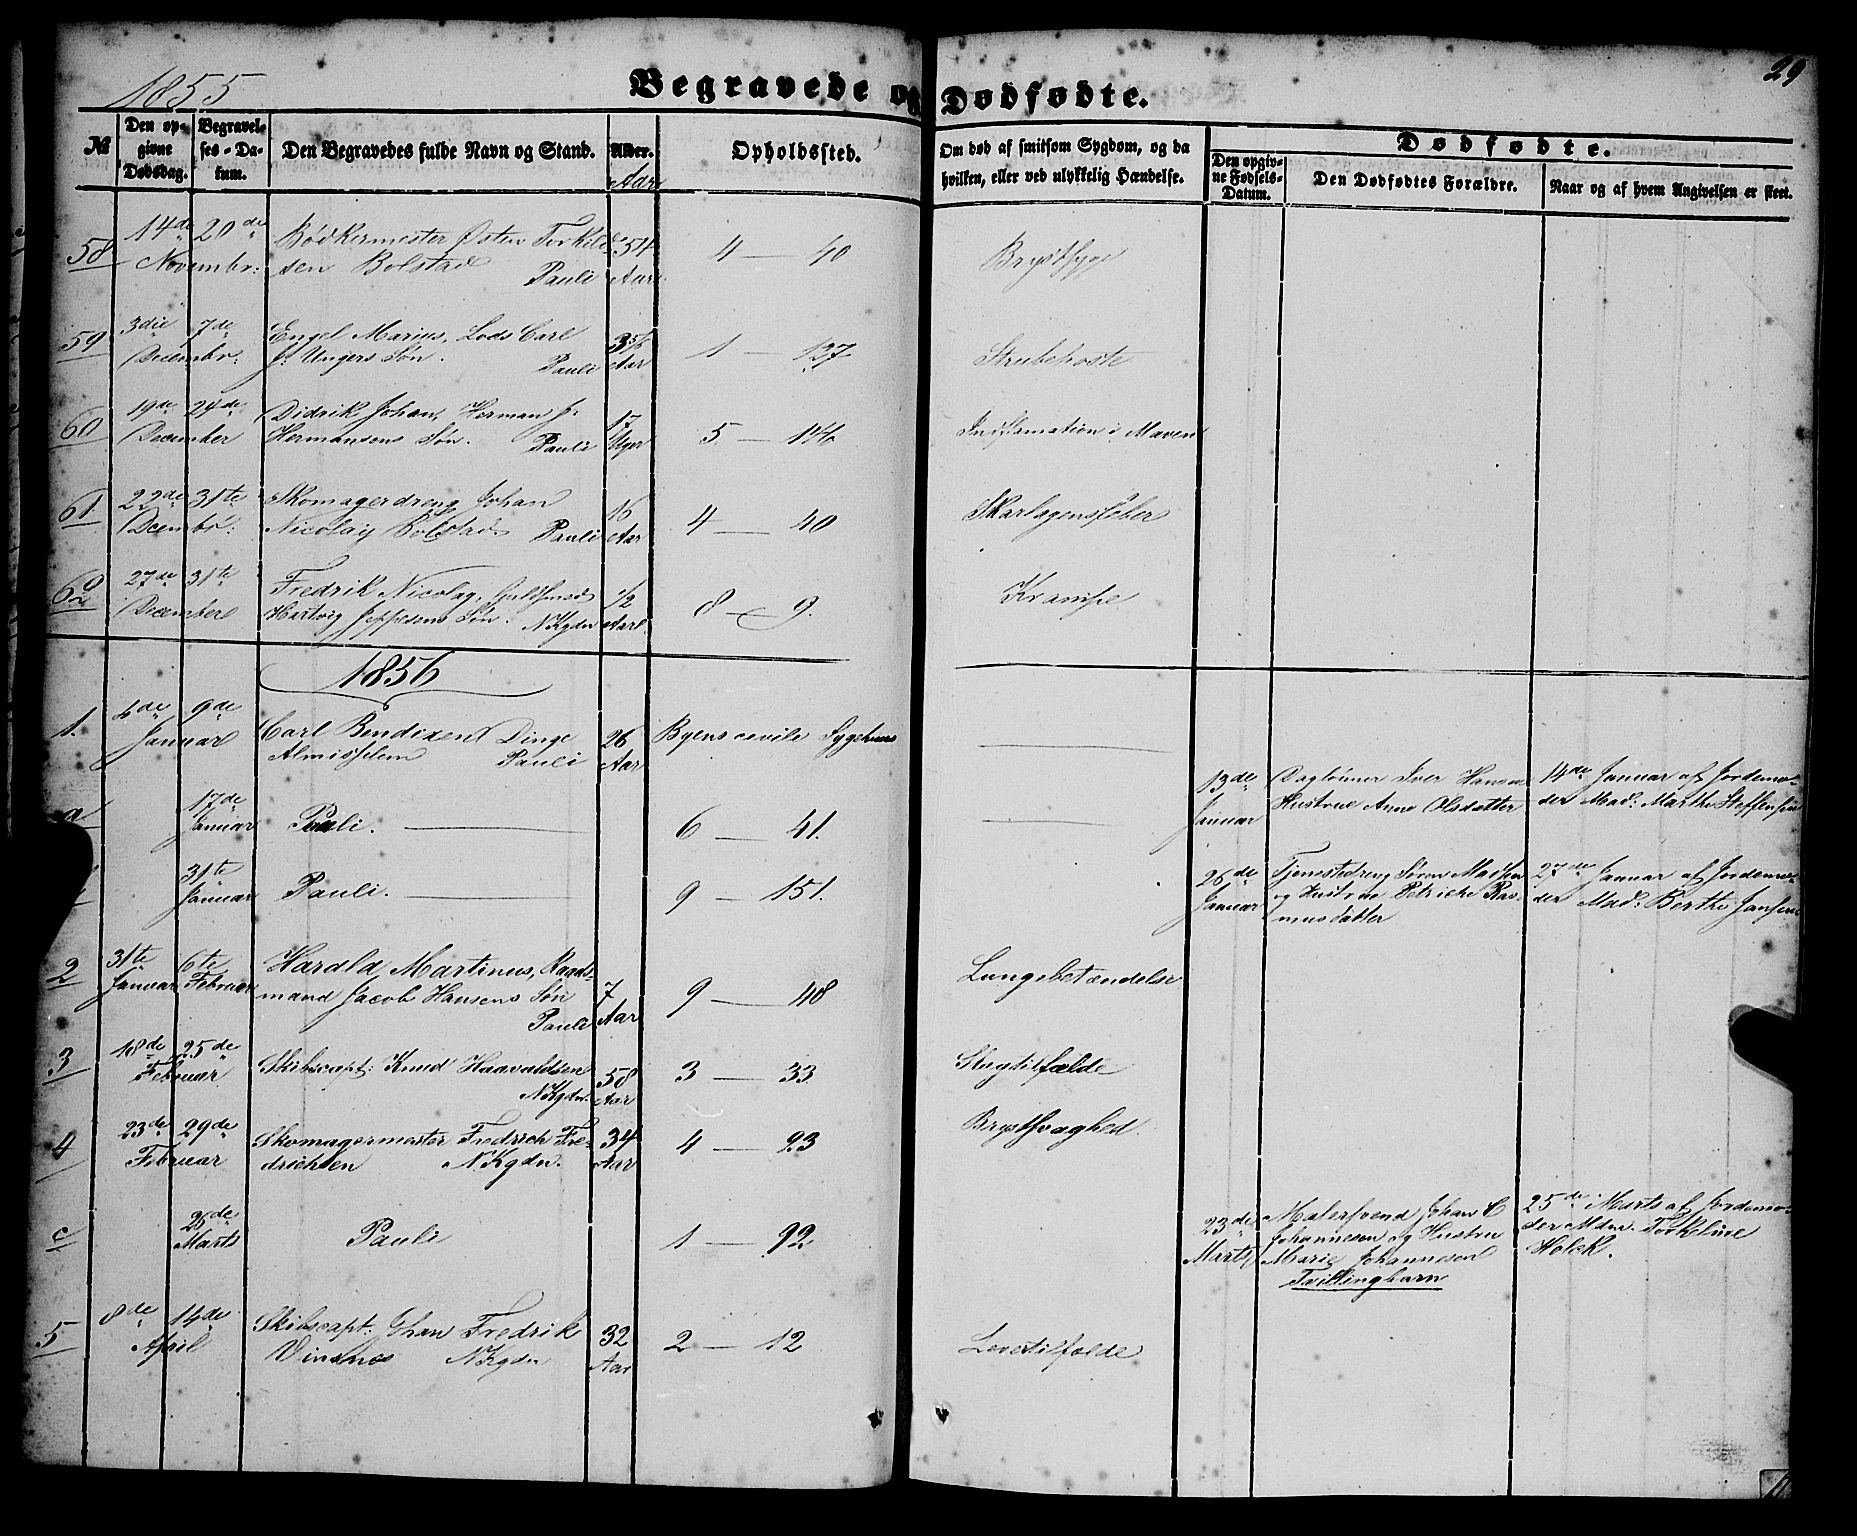 1855
Begravede og Dødfødte.
29
№
Den opgivne Dødsdag.
Begravelses-Datum.
Den Begravedes fulde Navn og Stand.
Alder.
Aar
Opholdssted.
Om død af smitsom Sygdom, og da hvilken, eller ved ulykkelig Hændelse.
Dødfødte.
Den opgivne Fødsels-Datum.
Den Dødfødtes Forældre.
Naar og af hvem Angivelsen er skeet.
58 14de 20de Bødkermester Østen Torkild- 54 4 — 40 Brystsyge
Novembr: sen Bolstad Pauli Aar
59 3die 7de Engel Marius, Lods Carl 1 — 127 Strubehoste
Decembr: J. Ungers Søn. Pauli Aar
60 19de 27de Didrik Johan, Herman J: 17 5 — Inflamation i Maven
December Hermansens Søn. Pauli Uger
61 22de 31te Skomagerdreng Johan 16 4 — 40 Skarlagensfeber
Decembr. Nicolay Bolstad Pauli Aar
62 27de 31te Fredrik Nicolay, Guldsmed 1/2 8 — 9. Krampe
December Hartvig Jeppesens Søn. NKgdn Aar
1856
1. 4de 9de Carl Bendixen Dinge 26 Byens cevile Sygehuus
Januar Pauli Aar
a 17de Januar Pauli. — 6 — 41. 13de Januar Daglønner Iver Hansen 14de Januar af Jordemo-
Hustrue Anne Olsdatter der Mad: Marthe Steffensen
31te Januar Pauli. — 9 — 151. 26de Januar Tjenestedreng Søren Madsen 27de Januar af Jordemo-
og Hustrue Petriche Ras- der Mad: Berthe Jansen
musdatter
2 31te 6te Harald Martinus, Raads- 7 9 — 48 Lungebetændelse
Januar Februar mand Jacob Hansens Søn
Pauli Aar
3 18de 25de Skibscapt: Knud Haavaldsen 58 3 — 33 Slagtilfælde
Februar NKgdn. Aar
4 23de 29de Skomagermester Fredrich Fre- 34 4 — 23 Brystsvaghed.
Februar drichsen N.Kgdn. Aar
c 26de Marts Pauli 1 — 92 23de Marts Malersvend Johan C 25de Marts af Jordemo-
Johannesen og Hustru der Mdm. Torkline
Marie Johannesen Holck.
Tvillingbarn
5 8de 14de Skibscapt: Johan Fredrik 32 2 — 12 Levertilfælde
April Vinsnes NKgdn Aar